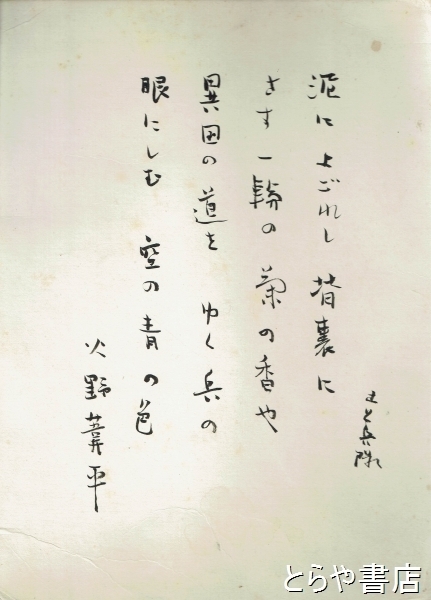 土と兵隊
泥によごれし 背嚢に
さす一輪の 菊の香や
異国の道を ゆく兵の
眼にしむ 空の青の色
火野葦平
とらや書店